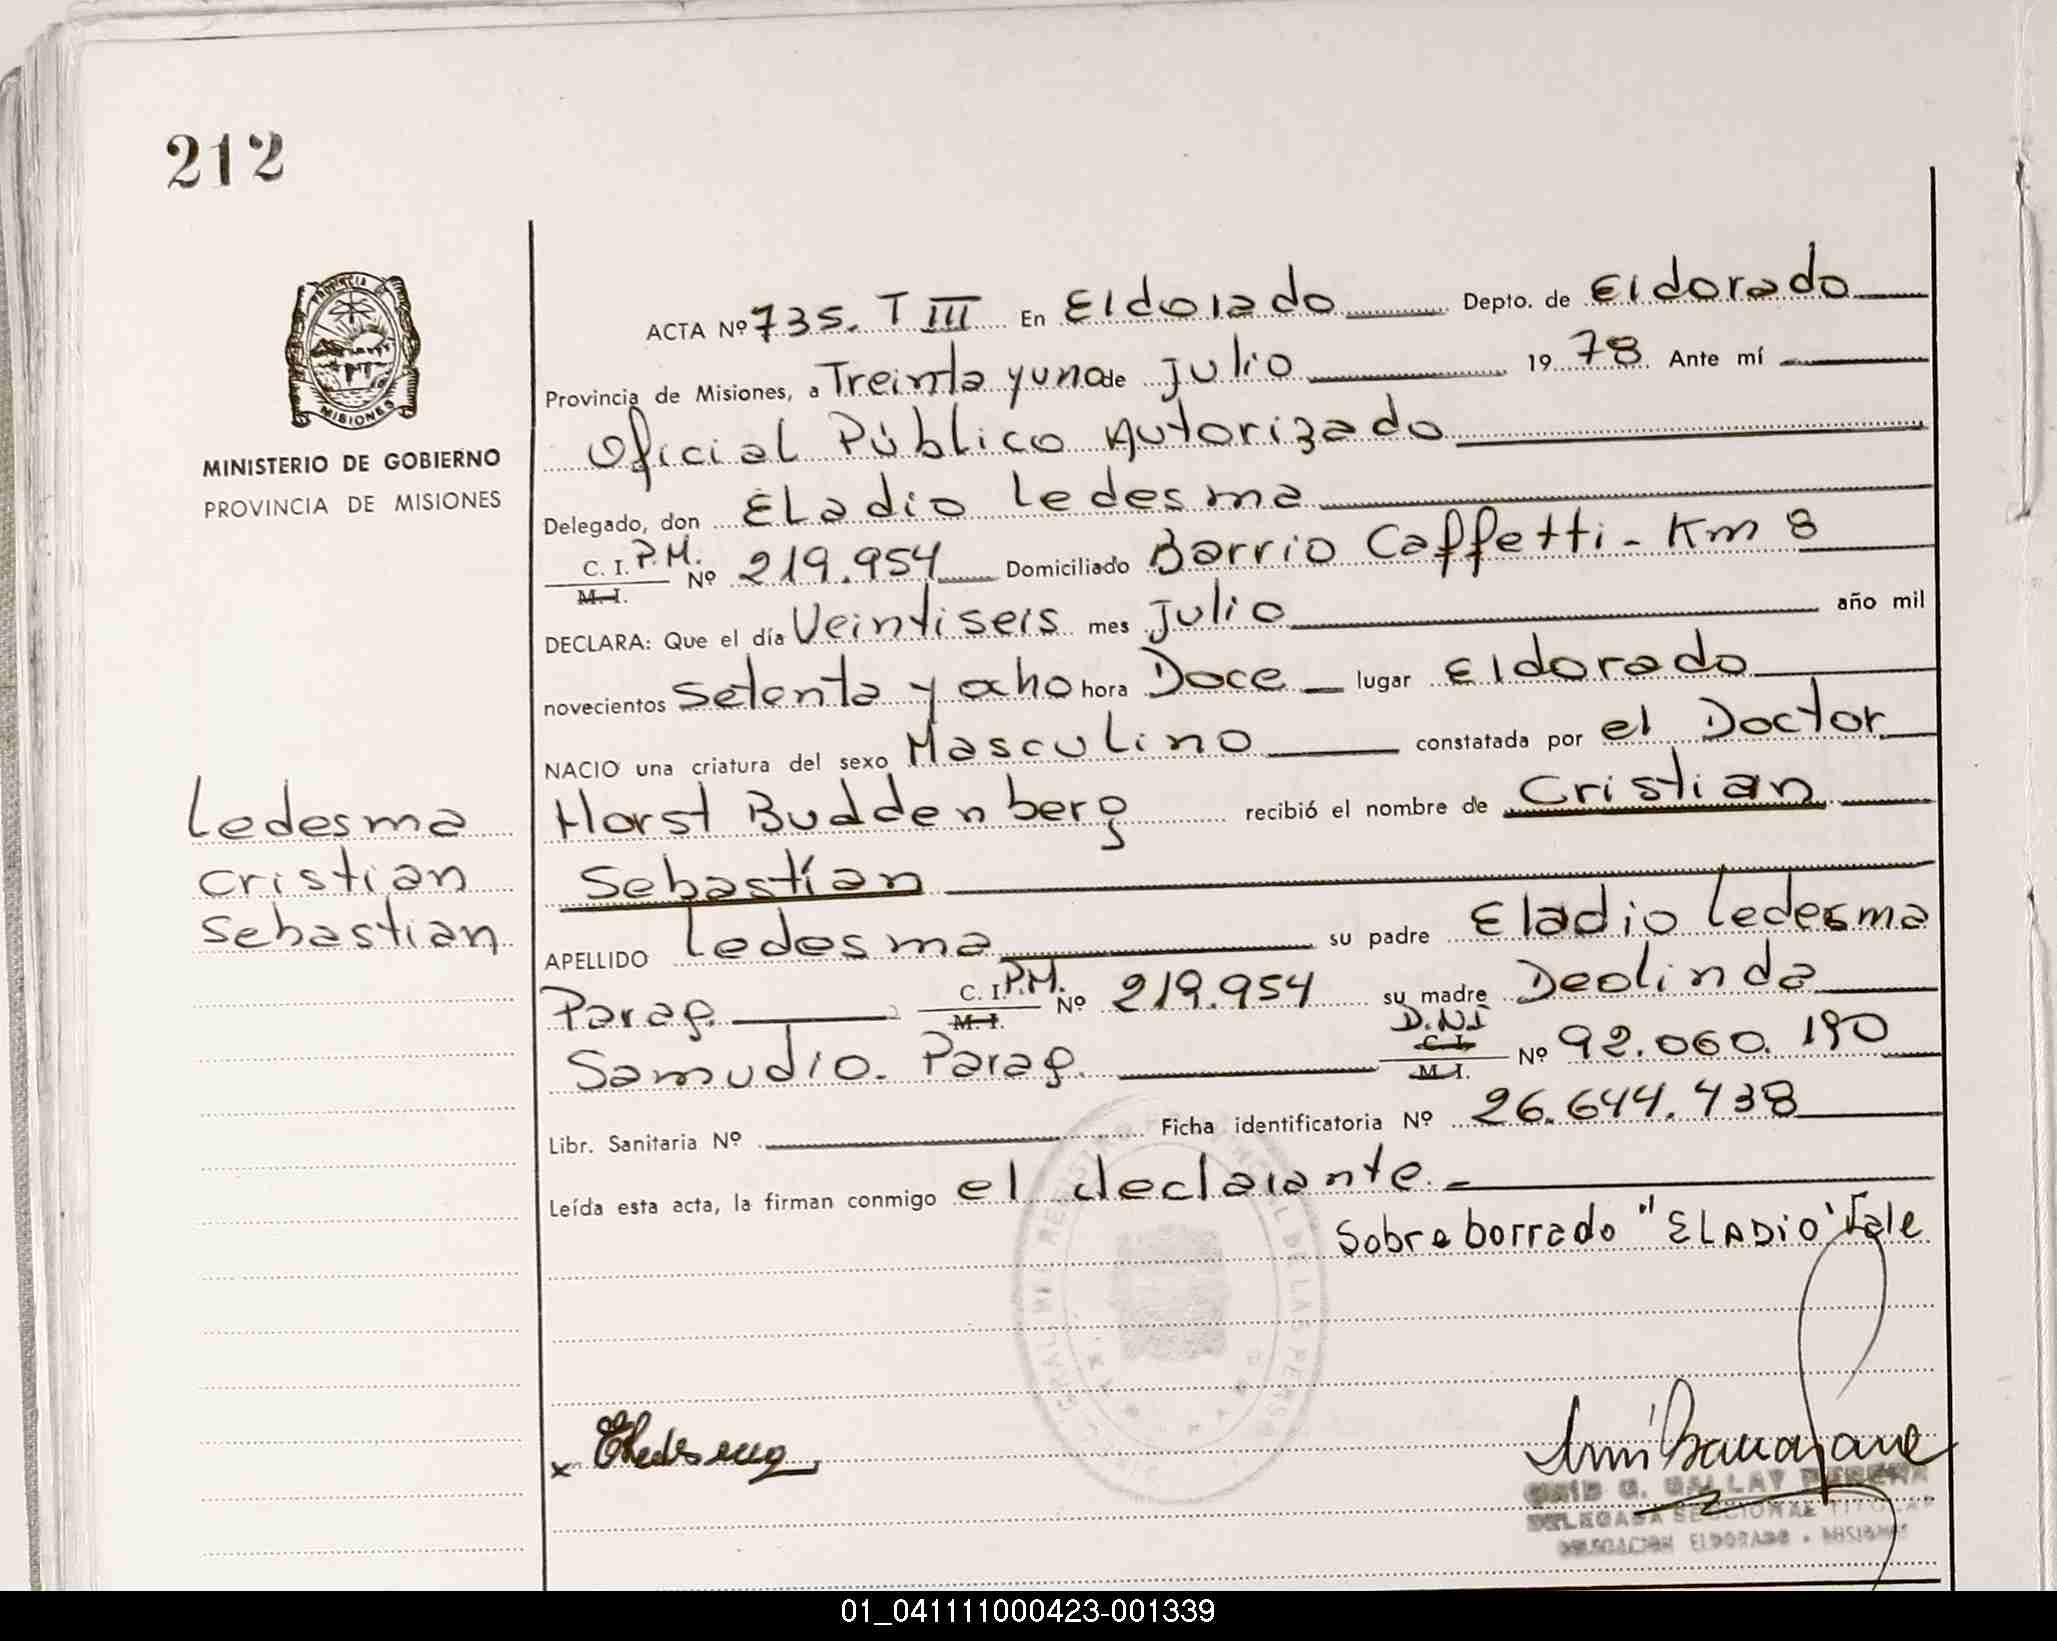 212
PROVINCIA DE
MISIONES
MINISTERIO DE GOBIERNO
PROVINCIA DE MISIONES
Ledesma
Cristian
Sebastian
ACTA Nº 735. T III En Eldorado Depto. de Eldorado
Provincia de Misiones, a Treinta y uno de Julio 19 78 Ante mí
Oficial Público Autorizado
Delegado, don Eladio Ledesma
C. I. P.M. Nº 219.954 Domiciliado Barrio Caffetti - Km 8
M. I.
DECLARA: Que el día Veintiseis mes Julio año mil
novecientos Setenta y ocho hora Doce lugar Eldorado
NACIO una criatura del sexo Masculino constatada por el Doctor
Horst Buddenberg recibió el nombre de Cristian
Sebastían
APELLIDO Ledesma su padre Eladio Ledesma
Parag. C. I. P.M. Nº 219.954 su madre Deolinda
M. I.
D.N.I
Samudio. Parag. C. I. Nº 92.060.190
M I.
Libr. Sanitaria Nº Ficha identificatoria Nº 26.644.438
Leída esta acta, la firman conmigo el declarante.-
Sobre borrado "ELADIO" Vale
x ELedesma
G. GALLAY PERERA
DELEGADA SECCIONAL TITULAR
DELEGACION ELDORADO - MISIONES
01_041111000423-001339